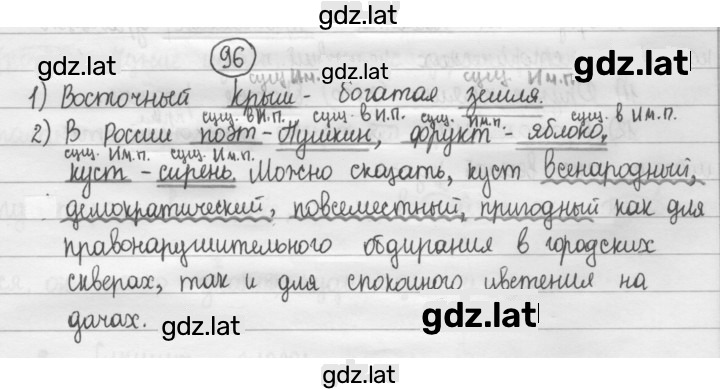 gdz.lat
96
gdz.lat
gdz.lat
сущ. Им.п. сущ. Им.п.
1) Восточный Крым - богатая земля.
сущ. в И.п. сущ. в И.п. сущ. Им.п. сущ. в Им.п.
2) В России поэт - Пушкин, фрукт - яблоко,
сущ. Им.п. сущ. Им.п.
куст - сирень. Можно сказать, куст всенародный,
демократический, повсеместный, пригодный как для
правонарушительного обдирания в городских
скверах, так и для спокойного цветения на
дачах.
gdz.lat
gdz.lat
gdz.lat